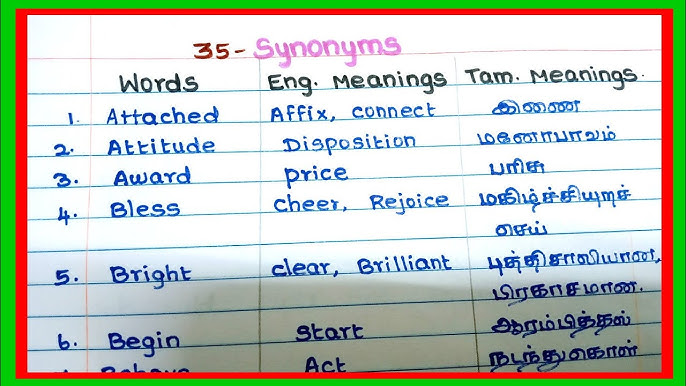 35 - Synonyms
Words Eng. Meanings Tam. Meanings.
1. Attached Affix, connect இணை
2. Attitude Disposition மனோபாவம்
3. Award price பரிசு
4. Bless cheer, Rejoice மகிழ்ச்சியுறச்
செய்
5. Bright clear, Brilliant புத்திசாலியான,
பிரகாசமான.
6. Begin Start ஆரம்பித்தல்
Act நடந்துகொள்